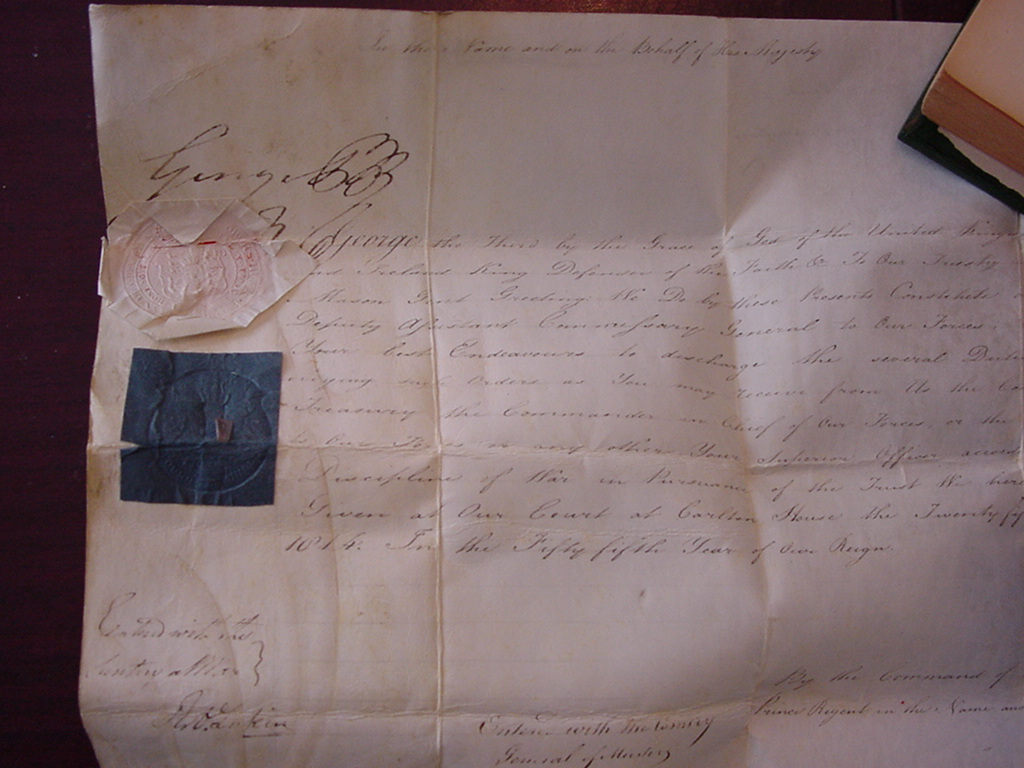 In the Name and on the Behalf of His Majesty
George P R
George the Third by the Grace of God of the United King
and Ireland King Defender of the Faith &c To Our Trusty
Mason Gent Greeting We Do by these Presents Constitute
Deputy Assistant Commissary General to Our Forces
Your best Endeavours to discharge the several Duties
such Orders as You may receive from Us the Co
Treasury the Commander in Chief of Our Forces, or the
to Our Forces or any other Your Superior Officer accord
Discipline of War in Pursuance of the Trust We here
Given at Our Court at Carlton House the Twenty fif
1814. In the Fifty fifth Year of Our Reign
Entered with the
Secretary at War
By the Command of
Prince Regent in the Name and
Entered with the Comry
General of Musters